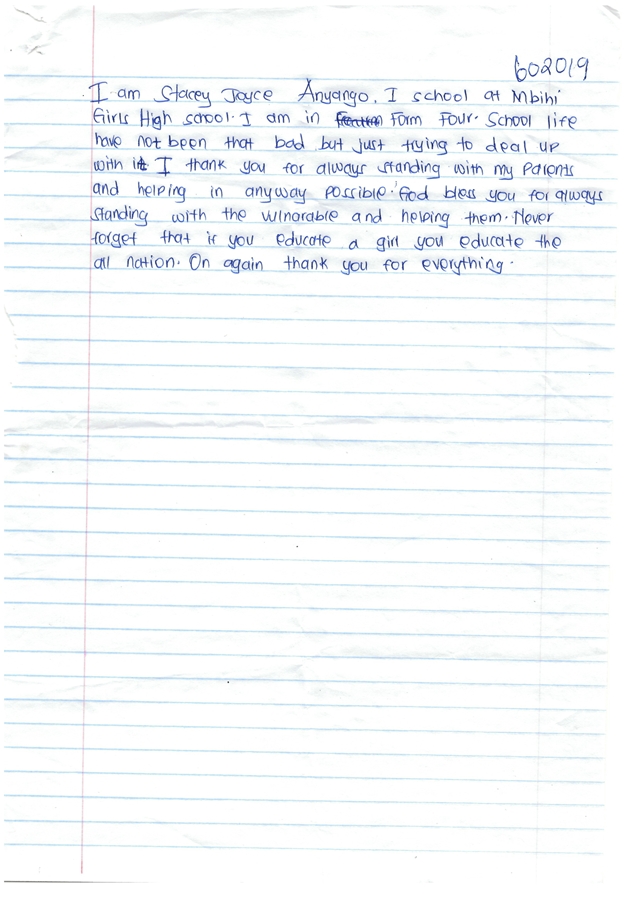 602019
I am Stacey Joyce Anyango. I school at Mbihi
Girls High school. I am in Form Four. School life
have not been that bad but just trying to deal up
with it I thank you for always standing with my Parents
and helping in anyway possible. God bless you for always
standing with the vulnorable and helping them. Never
forget that if you educate a girl you educate the
all nation. On again thank you for everything.